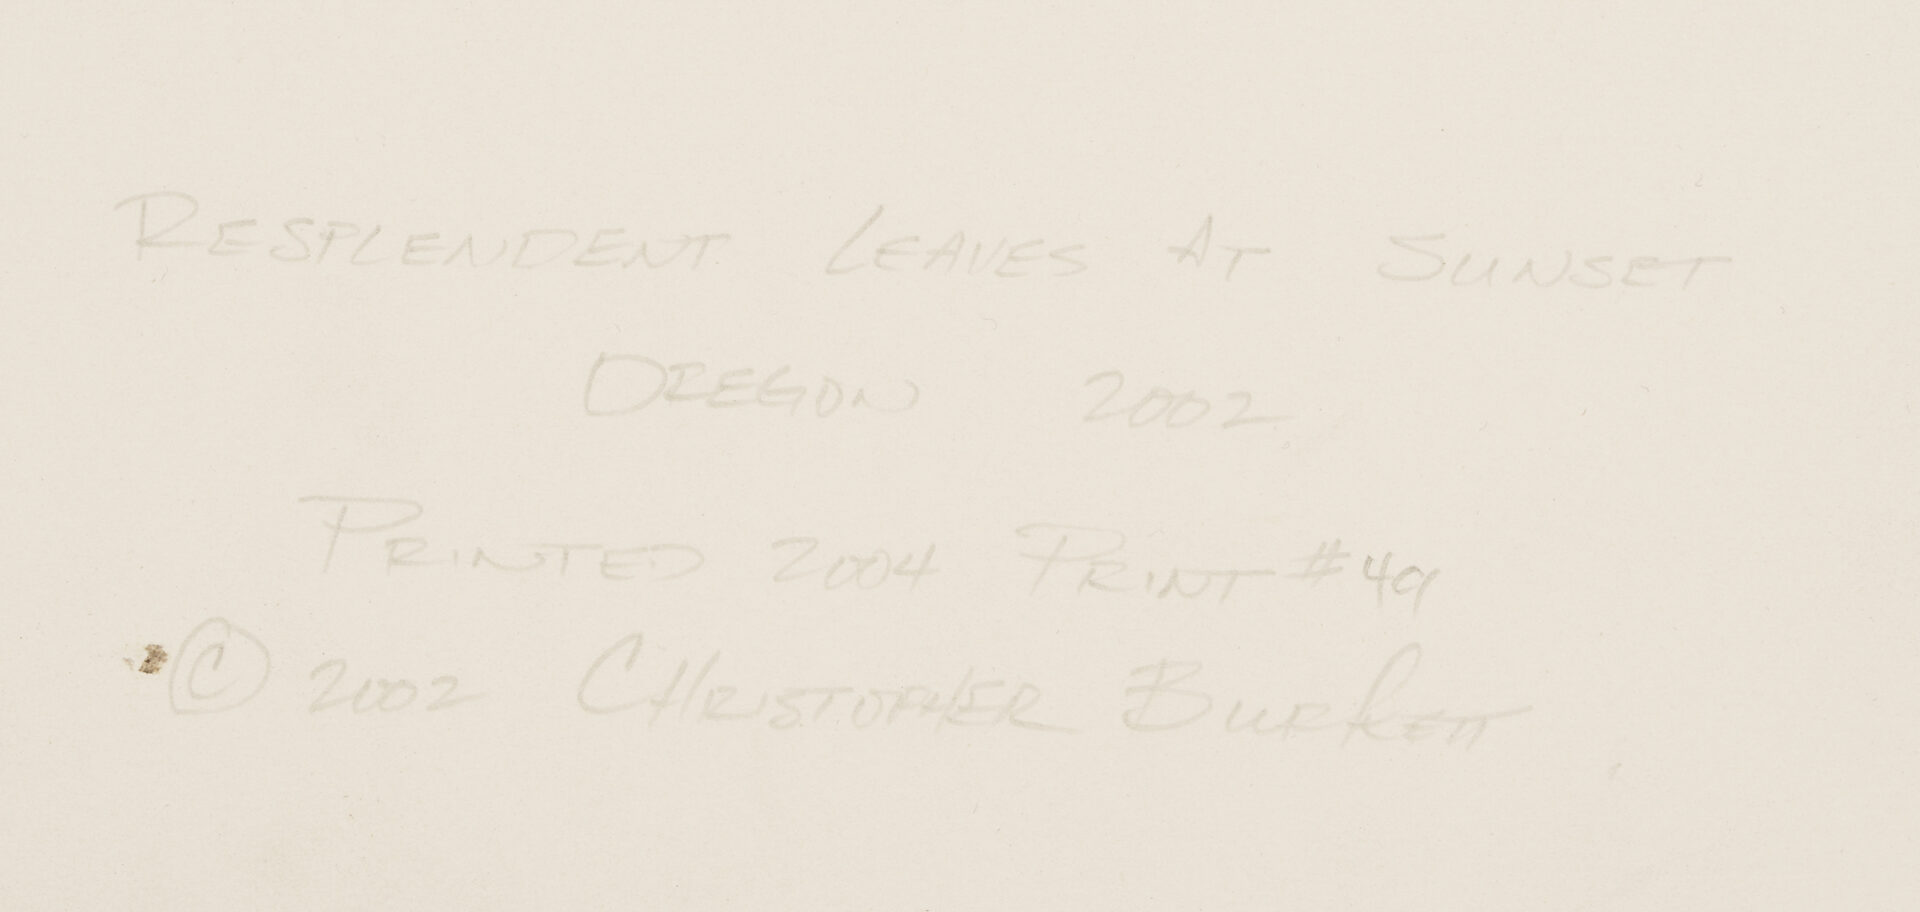 Resplendent Leaves At Sunset
Oregon 2002
Printed 2004 Print #49
© 2002 Christopher Burkett